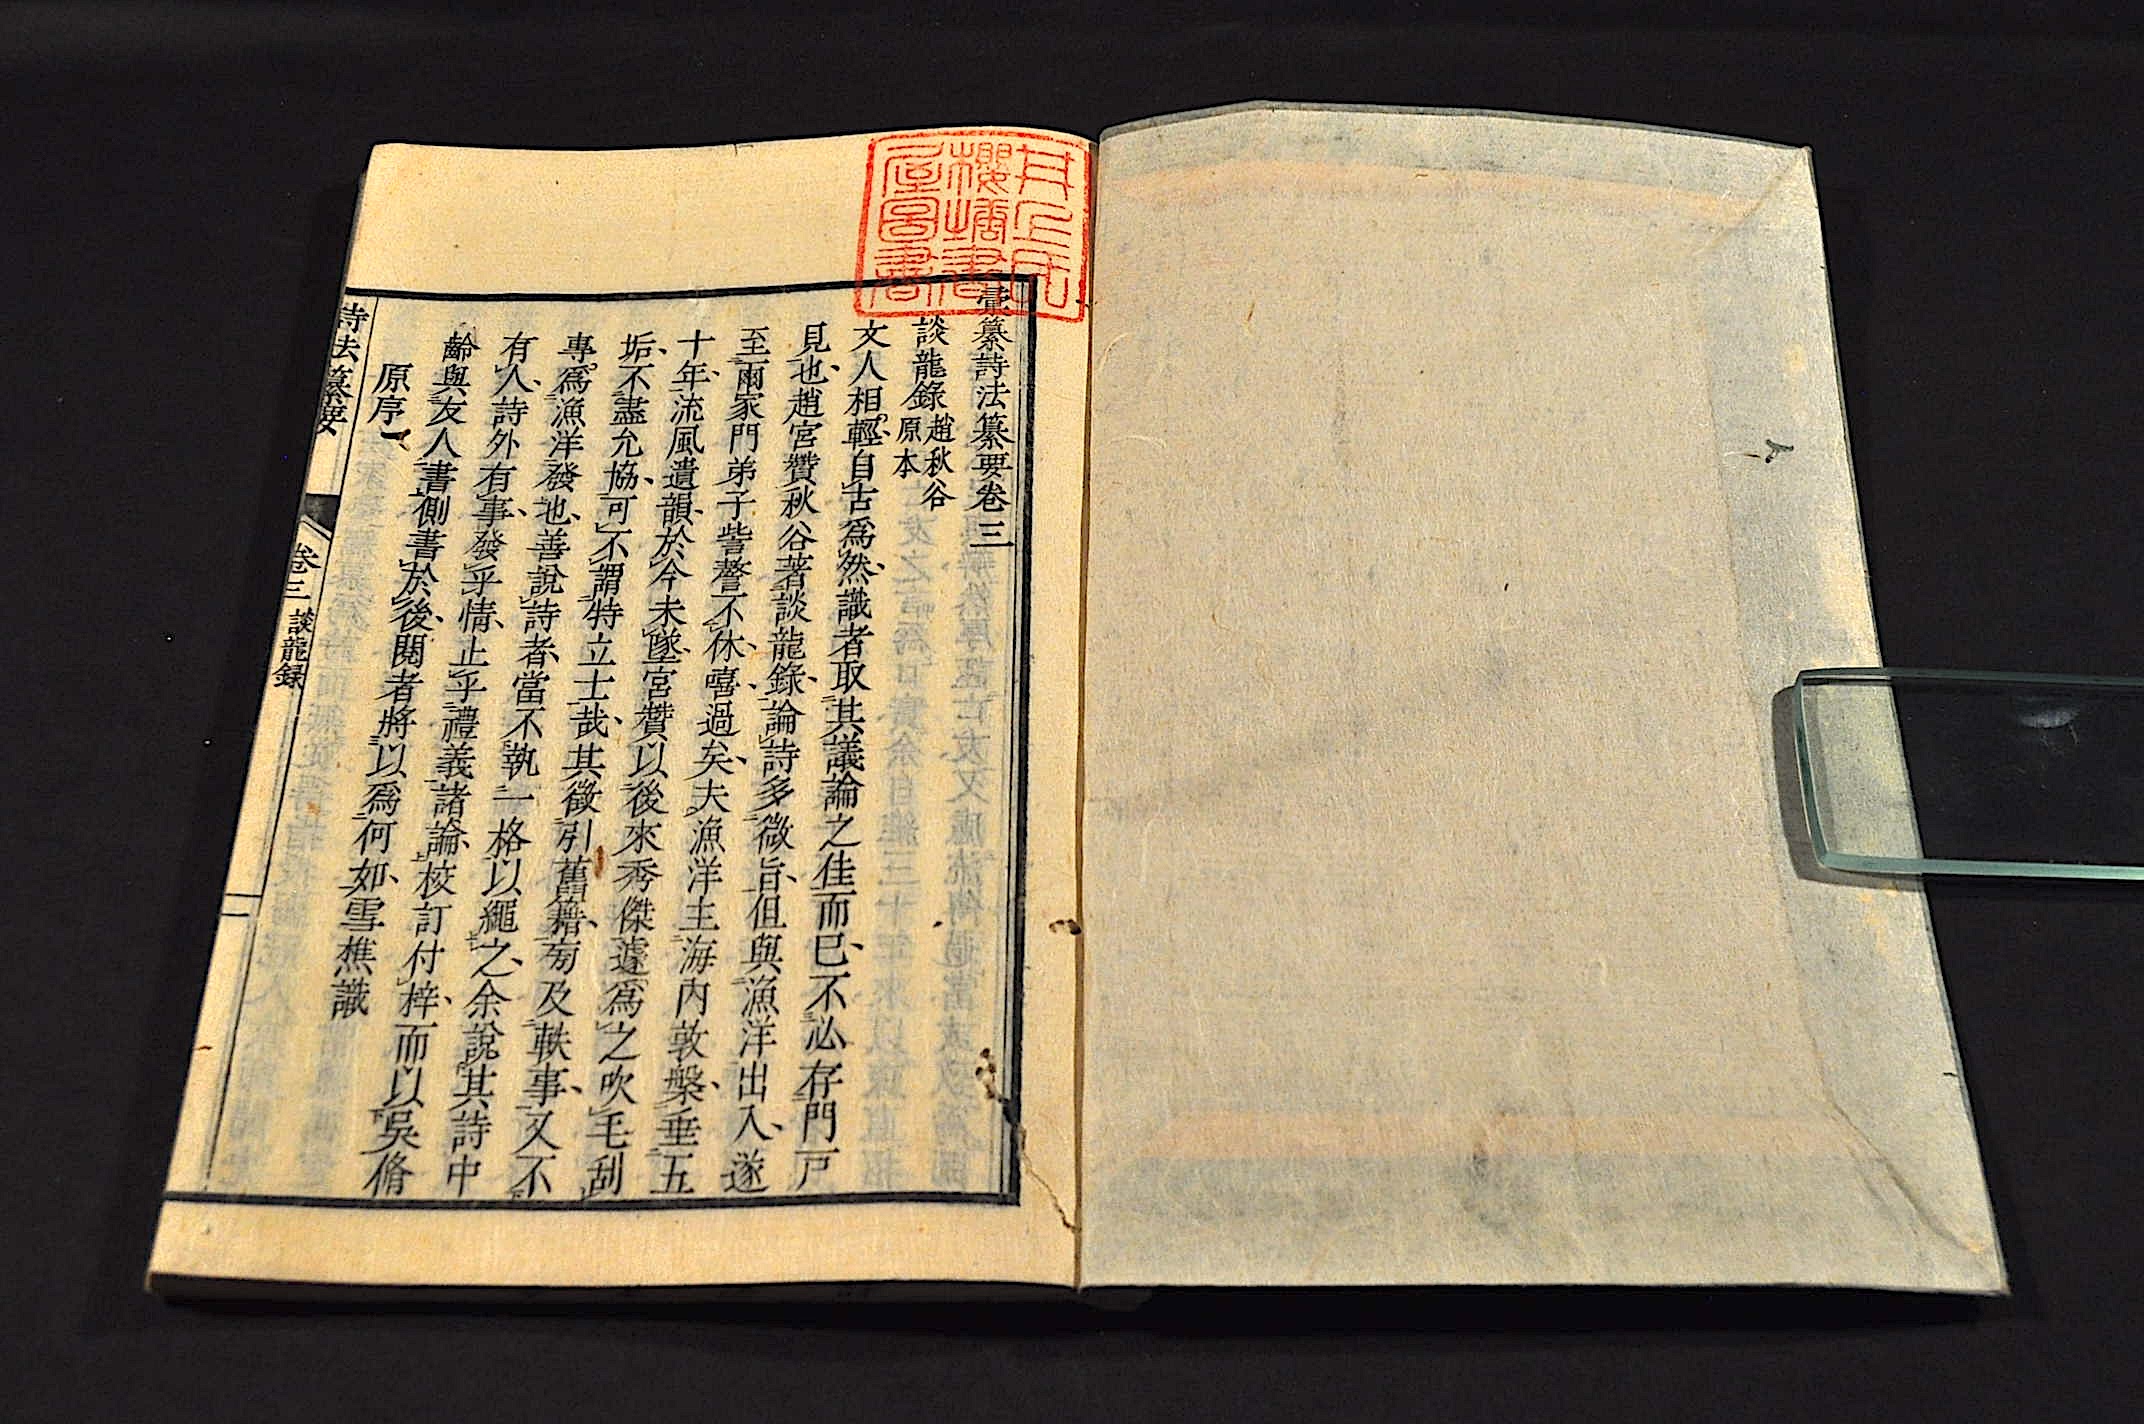 井上氏
櫻塘書
屋圖書
彙纂詩法纂要卷三
談龍錄
趙秋谷
原本
文人相輕自古爲然識者取其議論之佳而已不必存門戸
見也趙宮贊秋谷著談龍錄論詩多微旨但與漁洋出入遂
至兩家門弟子訾謷不休嘻過矣夫漁洋主海內敦槃垂五
十年流風遺韻於今未墜宮贊以後來秀傑遽爲之吹毛刮
垢不盡允協可不謂特立士哉其徵引舊籍旁及軼事又不
專爲漁洋發也善說詩者當不執一格以繩之余說其詩中
有人詩外有事發乎情止乎禮義諸論校訂付梓而以吳脩
齡與友人書側書於後閱者將以爲何如雪樵識
原序一
詩法纂要
卷三
談龍錄
一